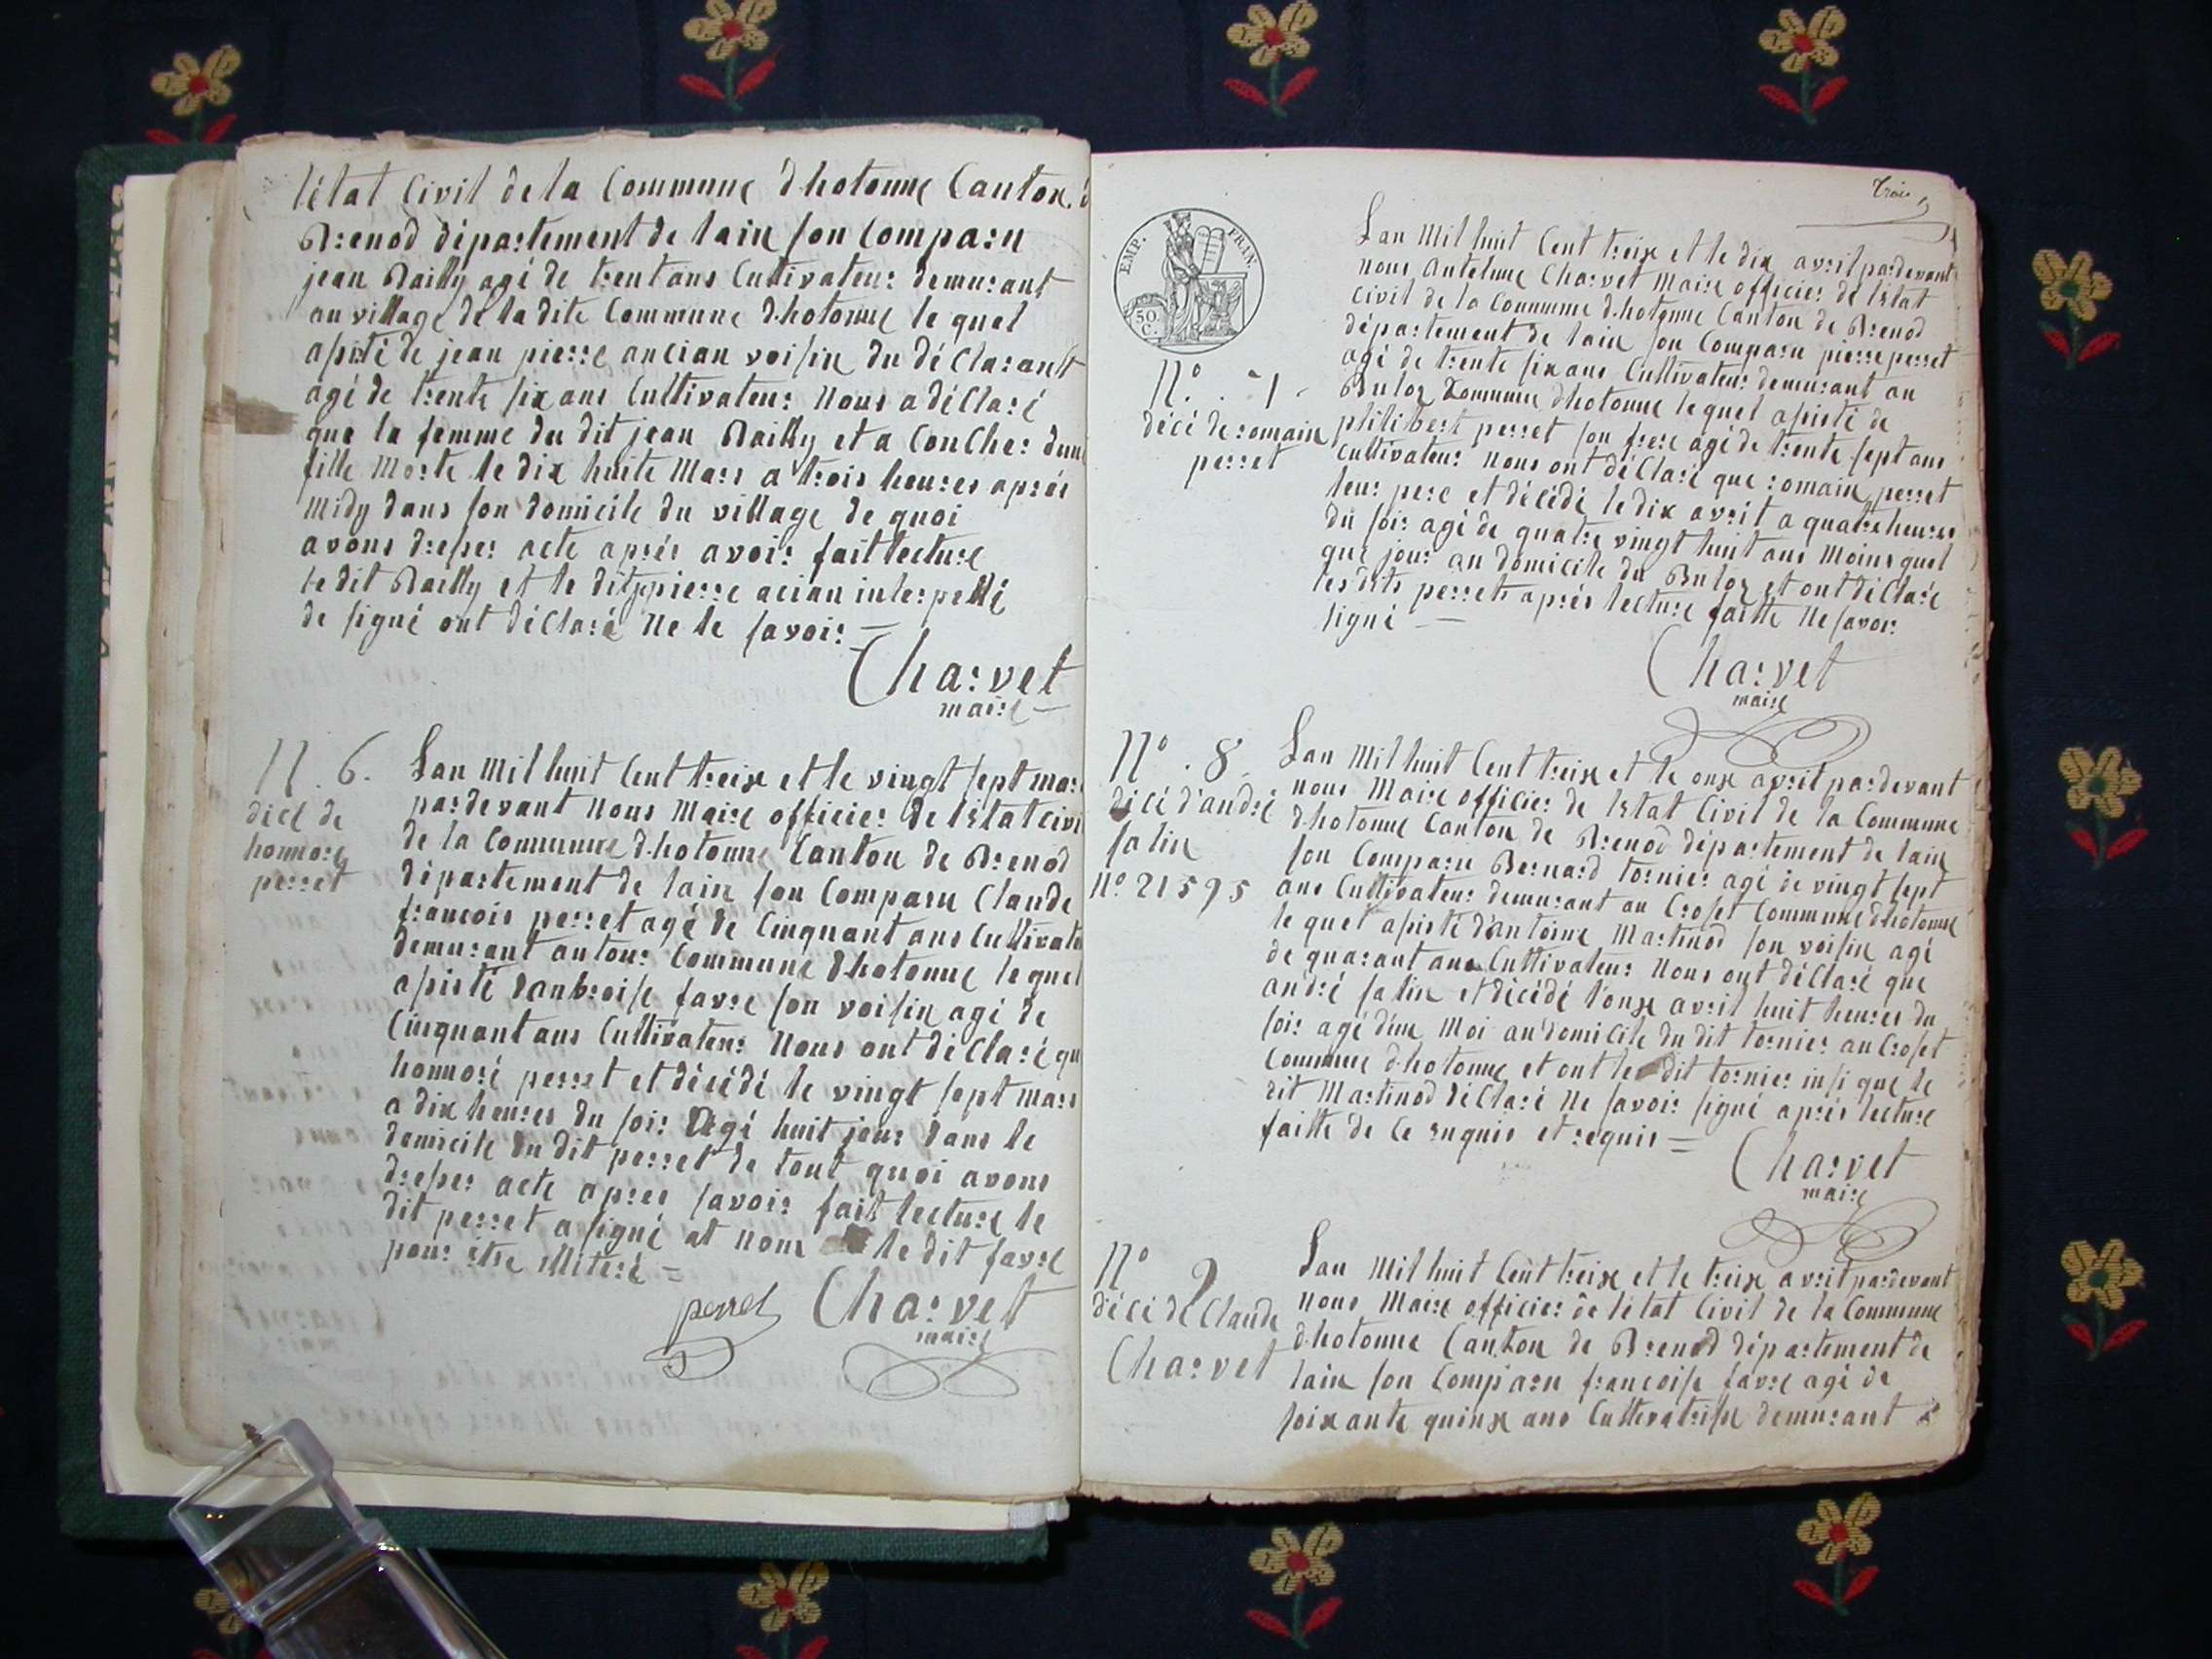 létat Civil de la Commune d'hotonne Canton. d
Brenod département de lain son Comparu
jean Bailly agé de trent ans Cultivateur demurant
au village de la dite Commune d'hotonne le quel
asisté de jean pierre ancian voisin du déClarant
agé de trente six ans Cultivateur Nous a déClaré
que la femme du dit jean Bailly et a ConCher dune
fille Morte le dix huite Mars a trois heures aprés
midy dans son domicile du village de quoi
avons dresser acte aprés avoir fait lecture
le dit Bailly et le dit pierre acian interpellé
de signé ont déClaré Ne le savoir =
Charvet
maire
N. 6.
dicd de
honnoré
perret
Lan Mil huit Cent treize et le vingt sept mars
par devant Nous Maire officier de létat civil
de la Commune d'hotonne Canton de Brenod
département de lain son Comparu Claude
francois perret agé de Cinquant ans Cultivate
demurant au tour Commune d'hotonne le quel
asisté danbroise favre son voisin agé de
Cinquant ans Cultivateur Nous ont déClaré qu
honnoré perret et décédé le vingt sept mars
a dix heures du soir agé huit jour dans le
domicile du dit perret de tout quoi avons
dresser acte apres savoir fait lecture le
dit perret a signé at nom le dit favre
pour être illiteré =
perret
Charvet
maire
Trois
EMP. FRAN.
50. C.
N°. 7.
décé de romain
perret
Lan Mil huit Cent treize et le dix avril par devant
nous antelme Charvet Maire officier de létat
Civil de la Commune d'hotonne Canton de Brenod
département de lain son Comparu pierre perret
agé de trente six ans Cultivateur demurant au
Buloz Commune d'hotonne le quel asisté de
philibert perret son frere agé de trente sept ans
Cultivateur Nous ont déClaré que romain perret
leur pere et décédé le dix avril a quatre heures
du soir agé de quatre vingt huit ans Moins quel
que jour au domicile du Buloz et ont déClaré
les dits perrets aprés lecture faitte Ne savoir
signé —
Charvet
maire
N°. 8.
décé d'andré
salin
N° 21595
Lan Mil huit Cent treize et le onze avril par devant
nous Maire officier de létat Civil de la Commune
d'hotonne Canton de Brenod département de lain
son Comparu Bernard tornier agé de vingt sept
ans Cultivateur demurant au Croset Commune d'hotonne
le quel asisté d'antoine Martinod son voisin agé
de quarant ans Cultivateur Nous ont déClaré que
andré salin et décédé l'onze avril huit heures du
soir agé d'un Moi au domicile du dit tornier au Croset
Commune d'hotonne et ont le dit tornier insi que le
dit Martinod déClaré Ne savoir signé aprés lecture
faitte de Ce enquis et requis =
Charvet
maire
N° 9
décé de Claude
Charvet
Lan Mil huit Cent treize et le treize avril par devant
Nous Maire officier de létat Civil de la Commune
d'hotonne Canton de Brenod département de
lain son Comparu francoise favre agé de
soixante quinze ans Cultivatrise demurant